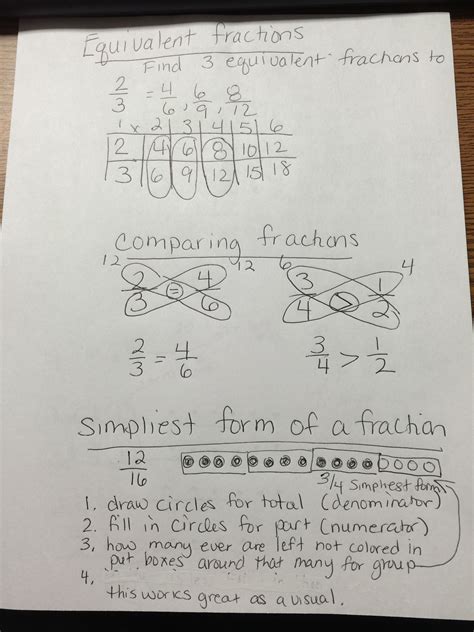 Equivalent fractions
Find 3 equivalent fractions to
2/3 = 4/6, 6/9, 8/12
1 x 2 | 3 | 4 | 5 | 6
2 | 4 | 6 | 8 | 10 | 12
3 | 6 | 9 | 12 | 15 | 18
Comparing fractions
12 2/3 = 4/6 12 6 3/4 > 1/2 4
2/3 = 4/6 3/4 > 1/2
Simpliest form of a fraction
12/16
3/4 Simpliest form
1. draw circles for total (denominator)
2. fill in circles for part (numerator)
3, how many ever are left not colored in
put boxes around that many for group
4.
this works great as a visual.